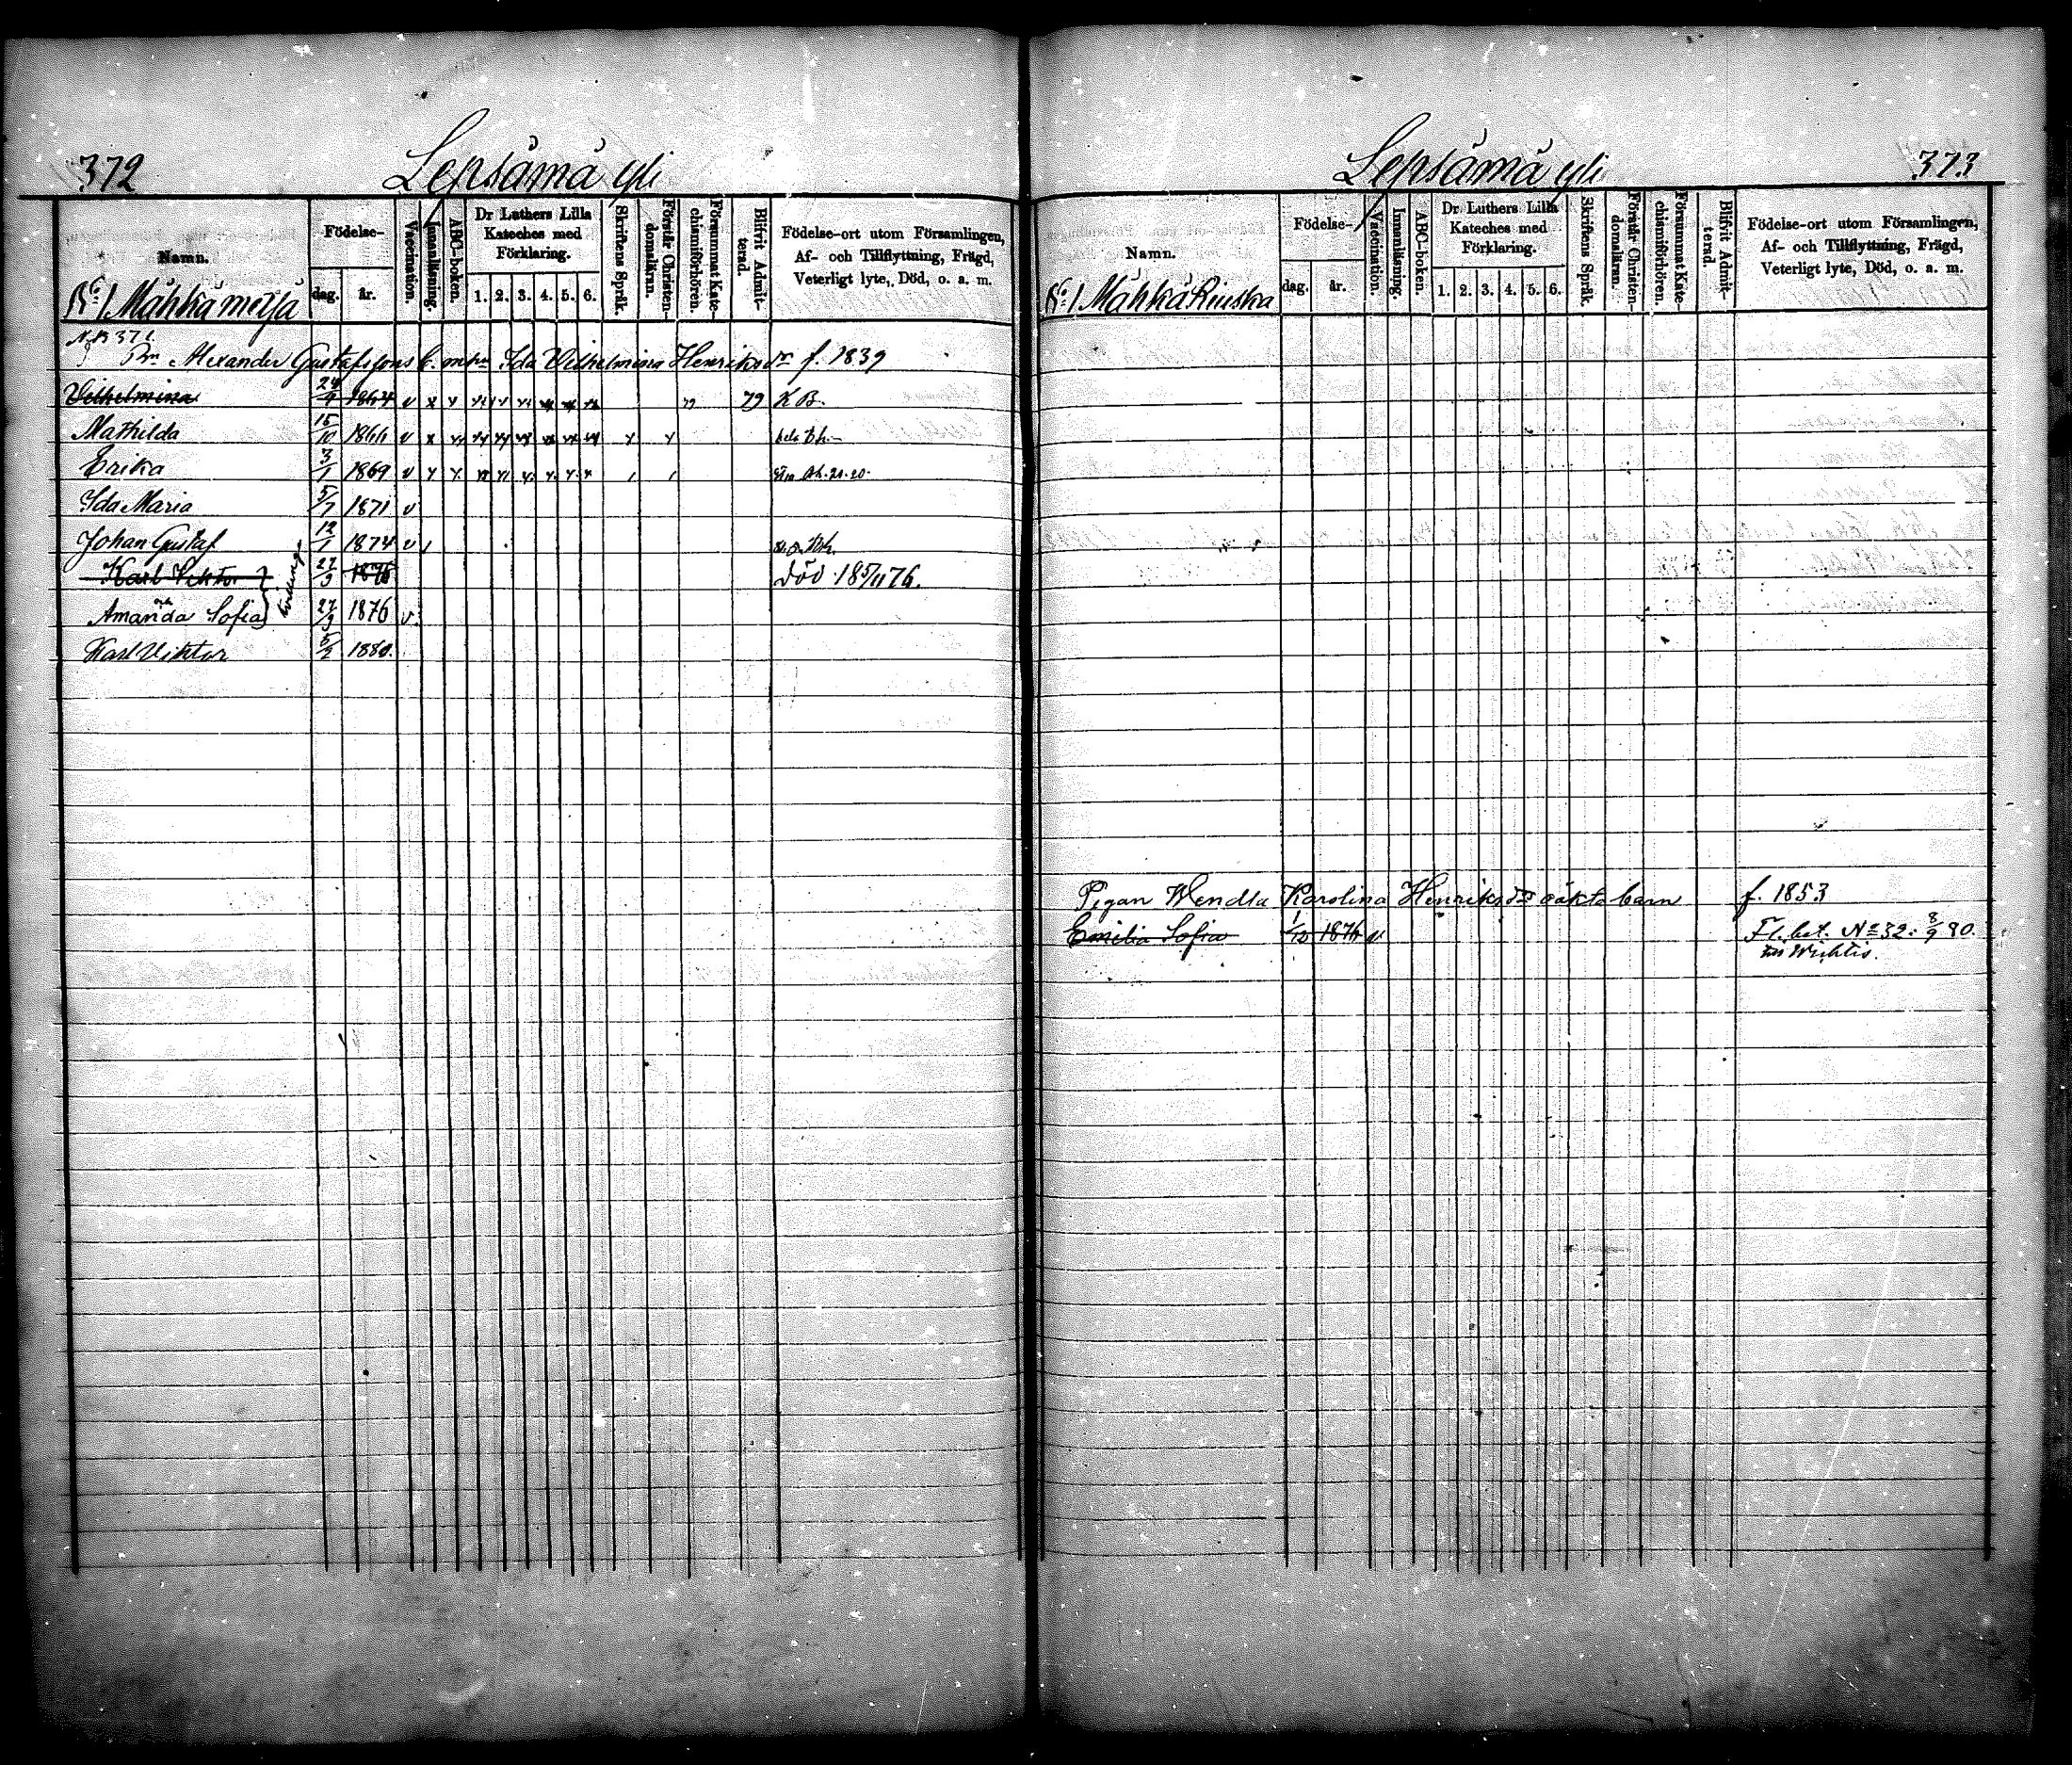 372
Lepsämä yli
Namn.
Födelse-
dag.
år.
Vaccination.
Innanläsning.
ABC-boken.
Dr Luthers Lilla
Kateches med
Förklaring.
1. 2. 3. 4. 5. 6.
Skriftens Språk.
Förstår Christen-
domsläran.
Försummat Kate-
chismiförhören.
Blifvit Admit-
terad.
Födelse-ort utom Församlingen,
Af- och Tillflyttning, Frägd,
Veterligt lyte, Död, o. a. m.
No 1
Alexander Gustafssons Ida Vilhelmina Henriksdr f. 1839
Vilhelmina 24 1864 v x 79 K B.
Mathilda 15/10 1866 v x
Erika 3/1 1869 v
Ida Maria 5/7 1871 v
Johan Gustaf 12/1 1874 v
Karl Viktor 27/9 1876 död 18 5/11 76.
Amanda Sofia 27/9 1876 v.
Karl Viktor 1880.
Lepsämä yli
373
Namn.
Födelse-
dag.
år.
Vaccination.
Innanläsning.
ABC-boken.
Dr Luthers Lilla
Kateches med
Förklaring.
1. 2. 3. 4. 5. 6.
Skriftens Språk.
Förstår Christen-
domsläran.
Försummat Kate-
chismiförhören.
Blifvit Admit-
terad.
Födelse-ort utom Församlingen,
Af- och Tillflyttning, Frägd,
Veterligt lyte, Död, o. a. m.
Pigan Wendla Karolina Henriksdrs oäkta barn f. 1853
Emilia Sofia 1/12 1876 v Fl. bet. No 32. 8/9 80.
Wichtis.